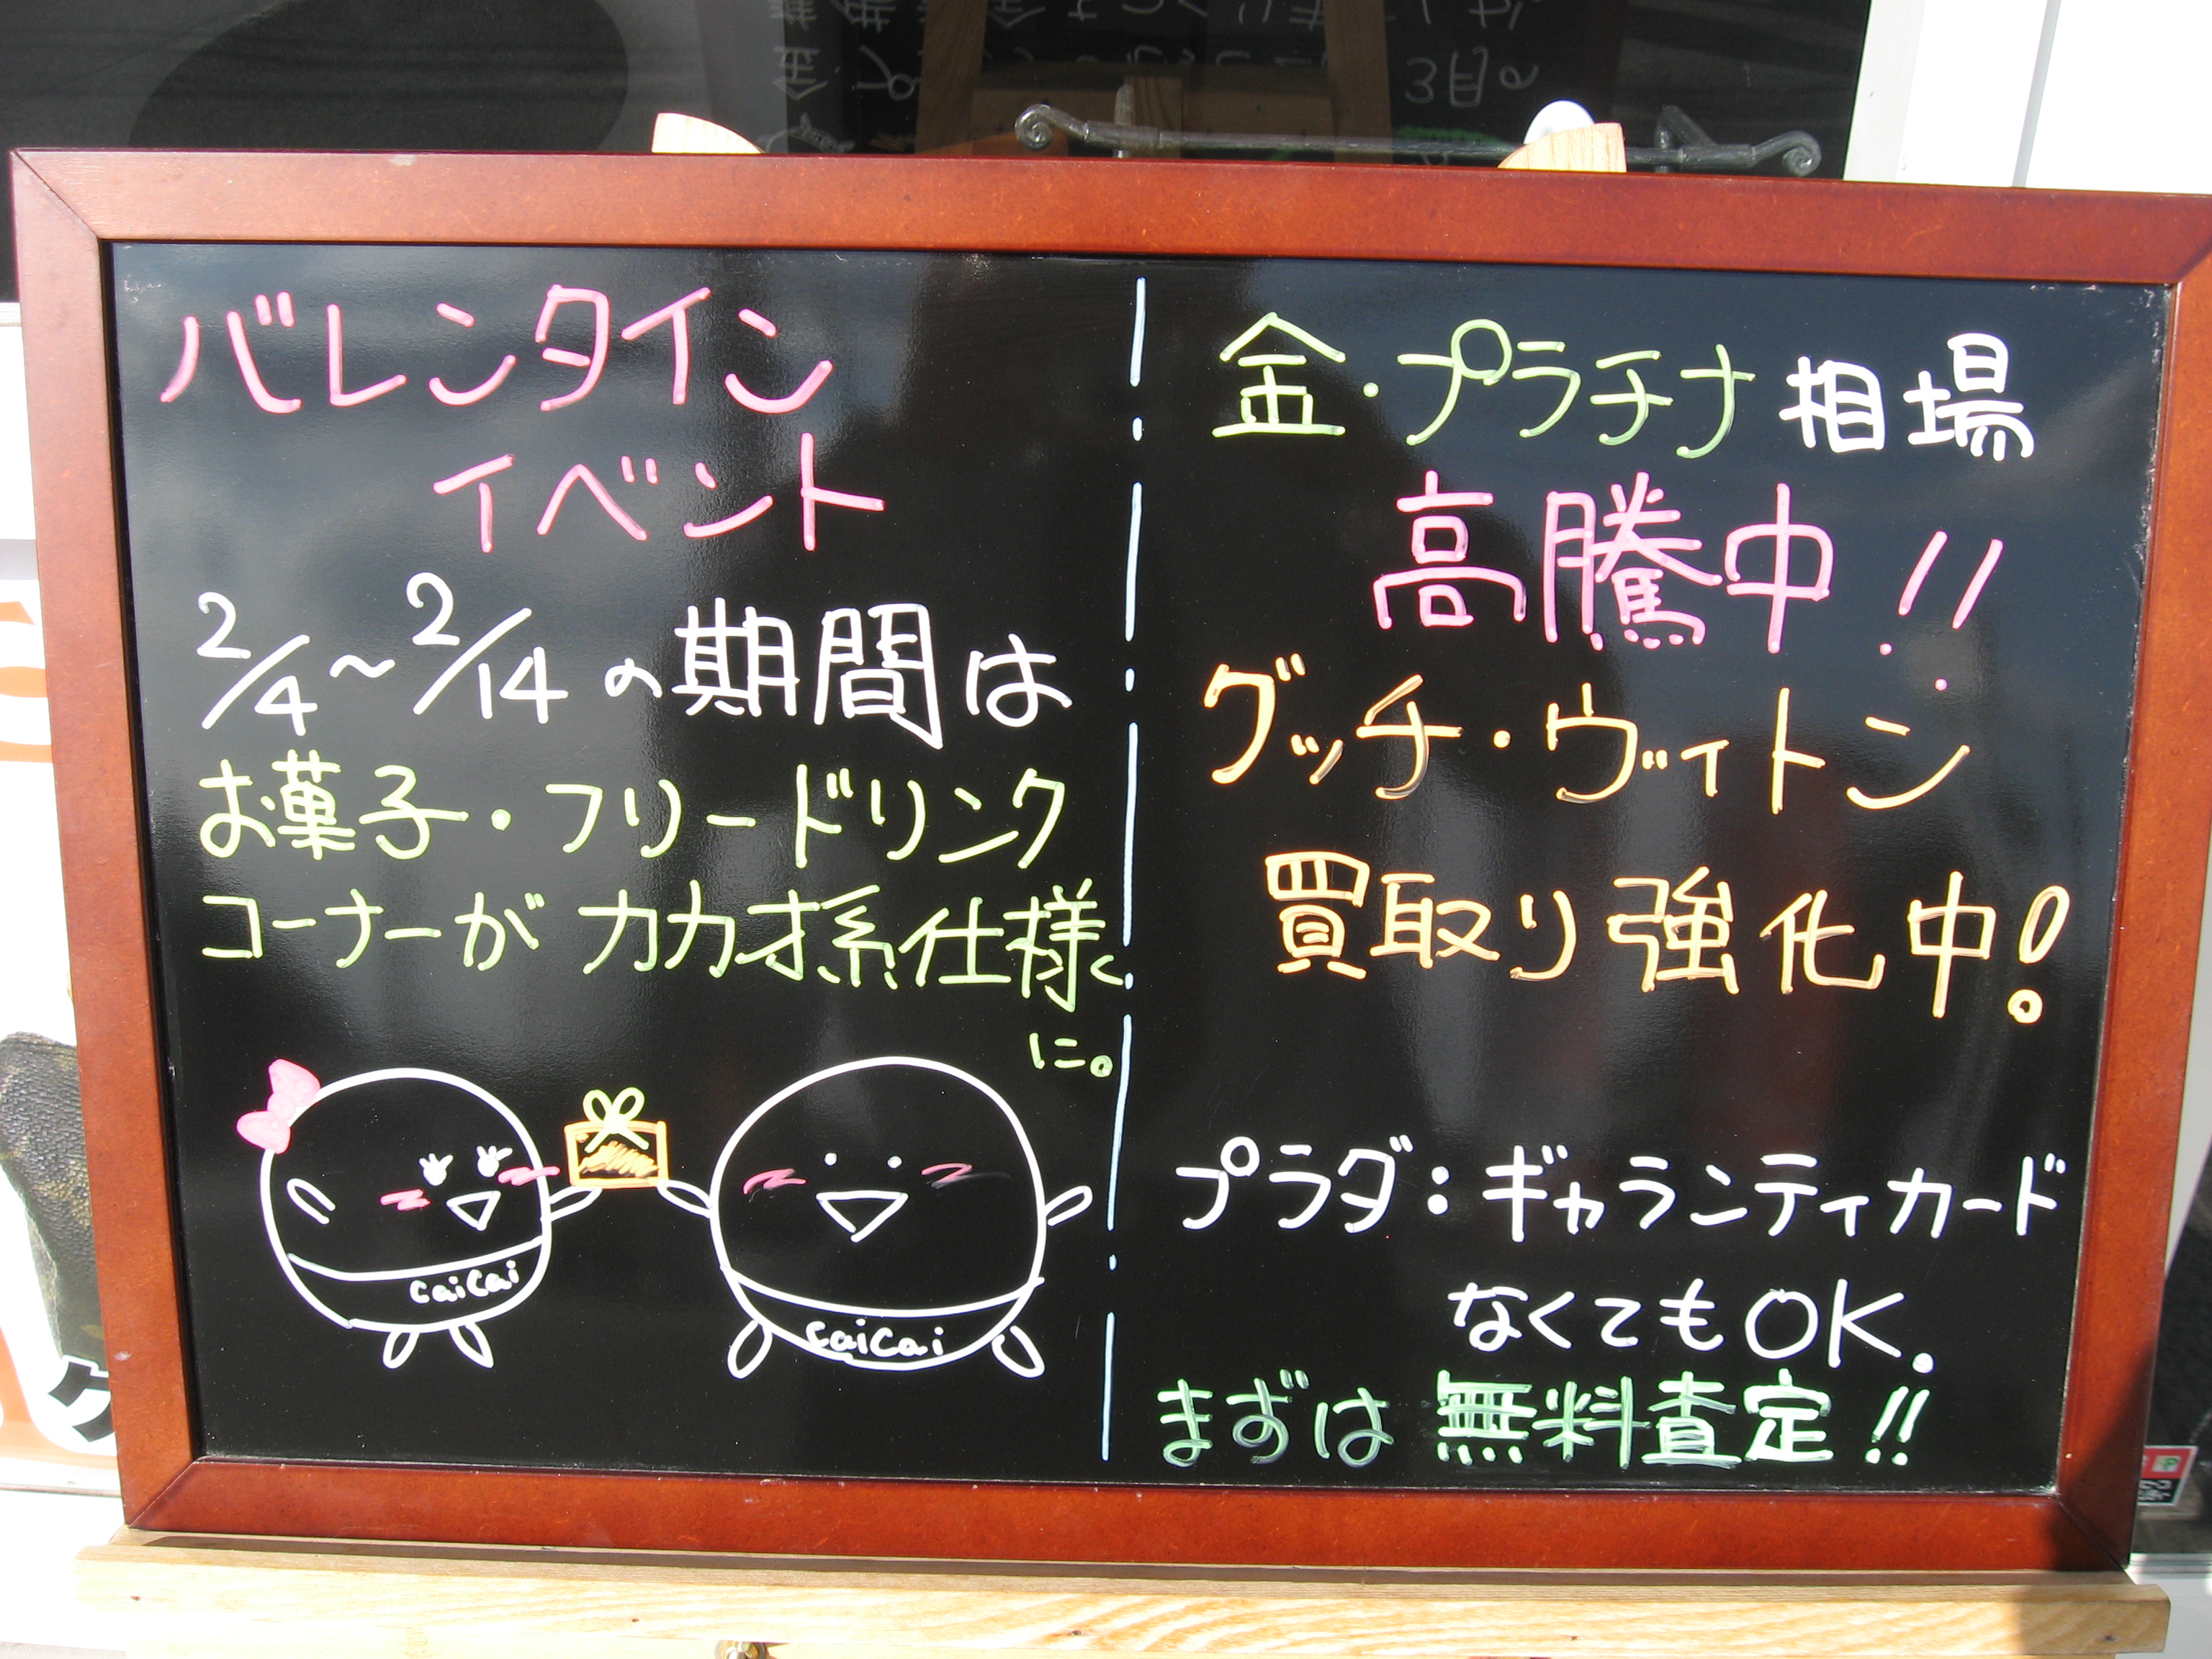 バレンタイン
イベント
2/4～2/14の期間は
お菓子・フリードリンク
コーナーがカカオ系仕様
に。
caicai
caicai
金・プラチナ相場
高騰中!!
グッチ・ヴィトン
買取り強化中!
プラダ:ギャランティカード
なくてもOK.
まずは無料査定!!